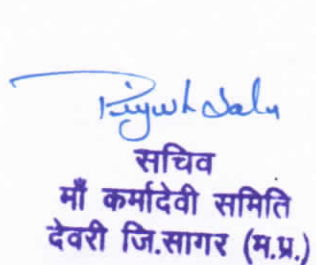 Piyush Sahu
सचिव
माँ कर्मादेवी समिति
देवरी जि.सागर (म.प्र.)